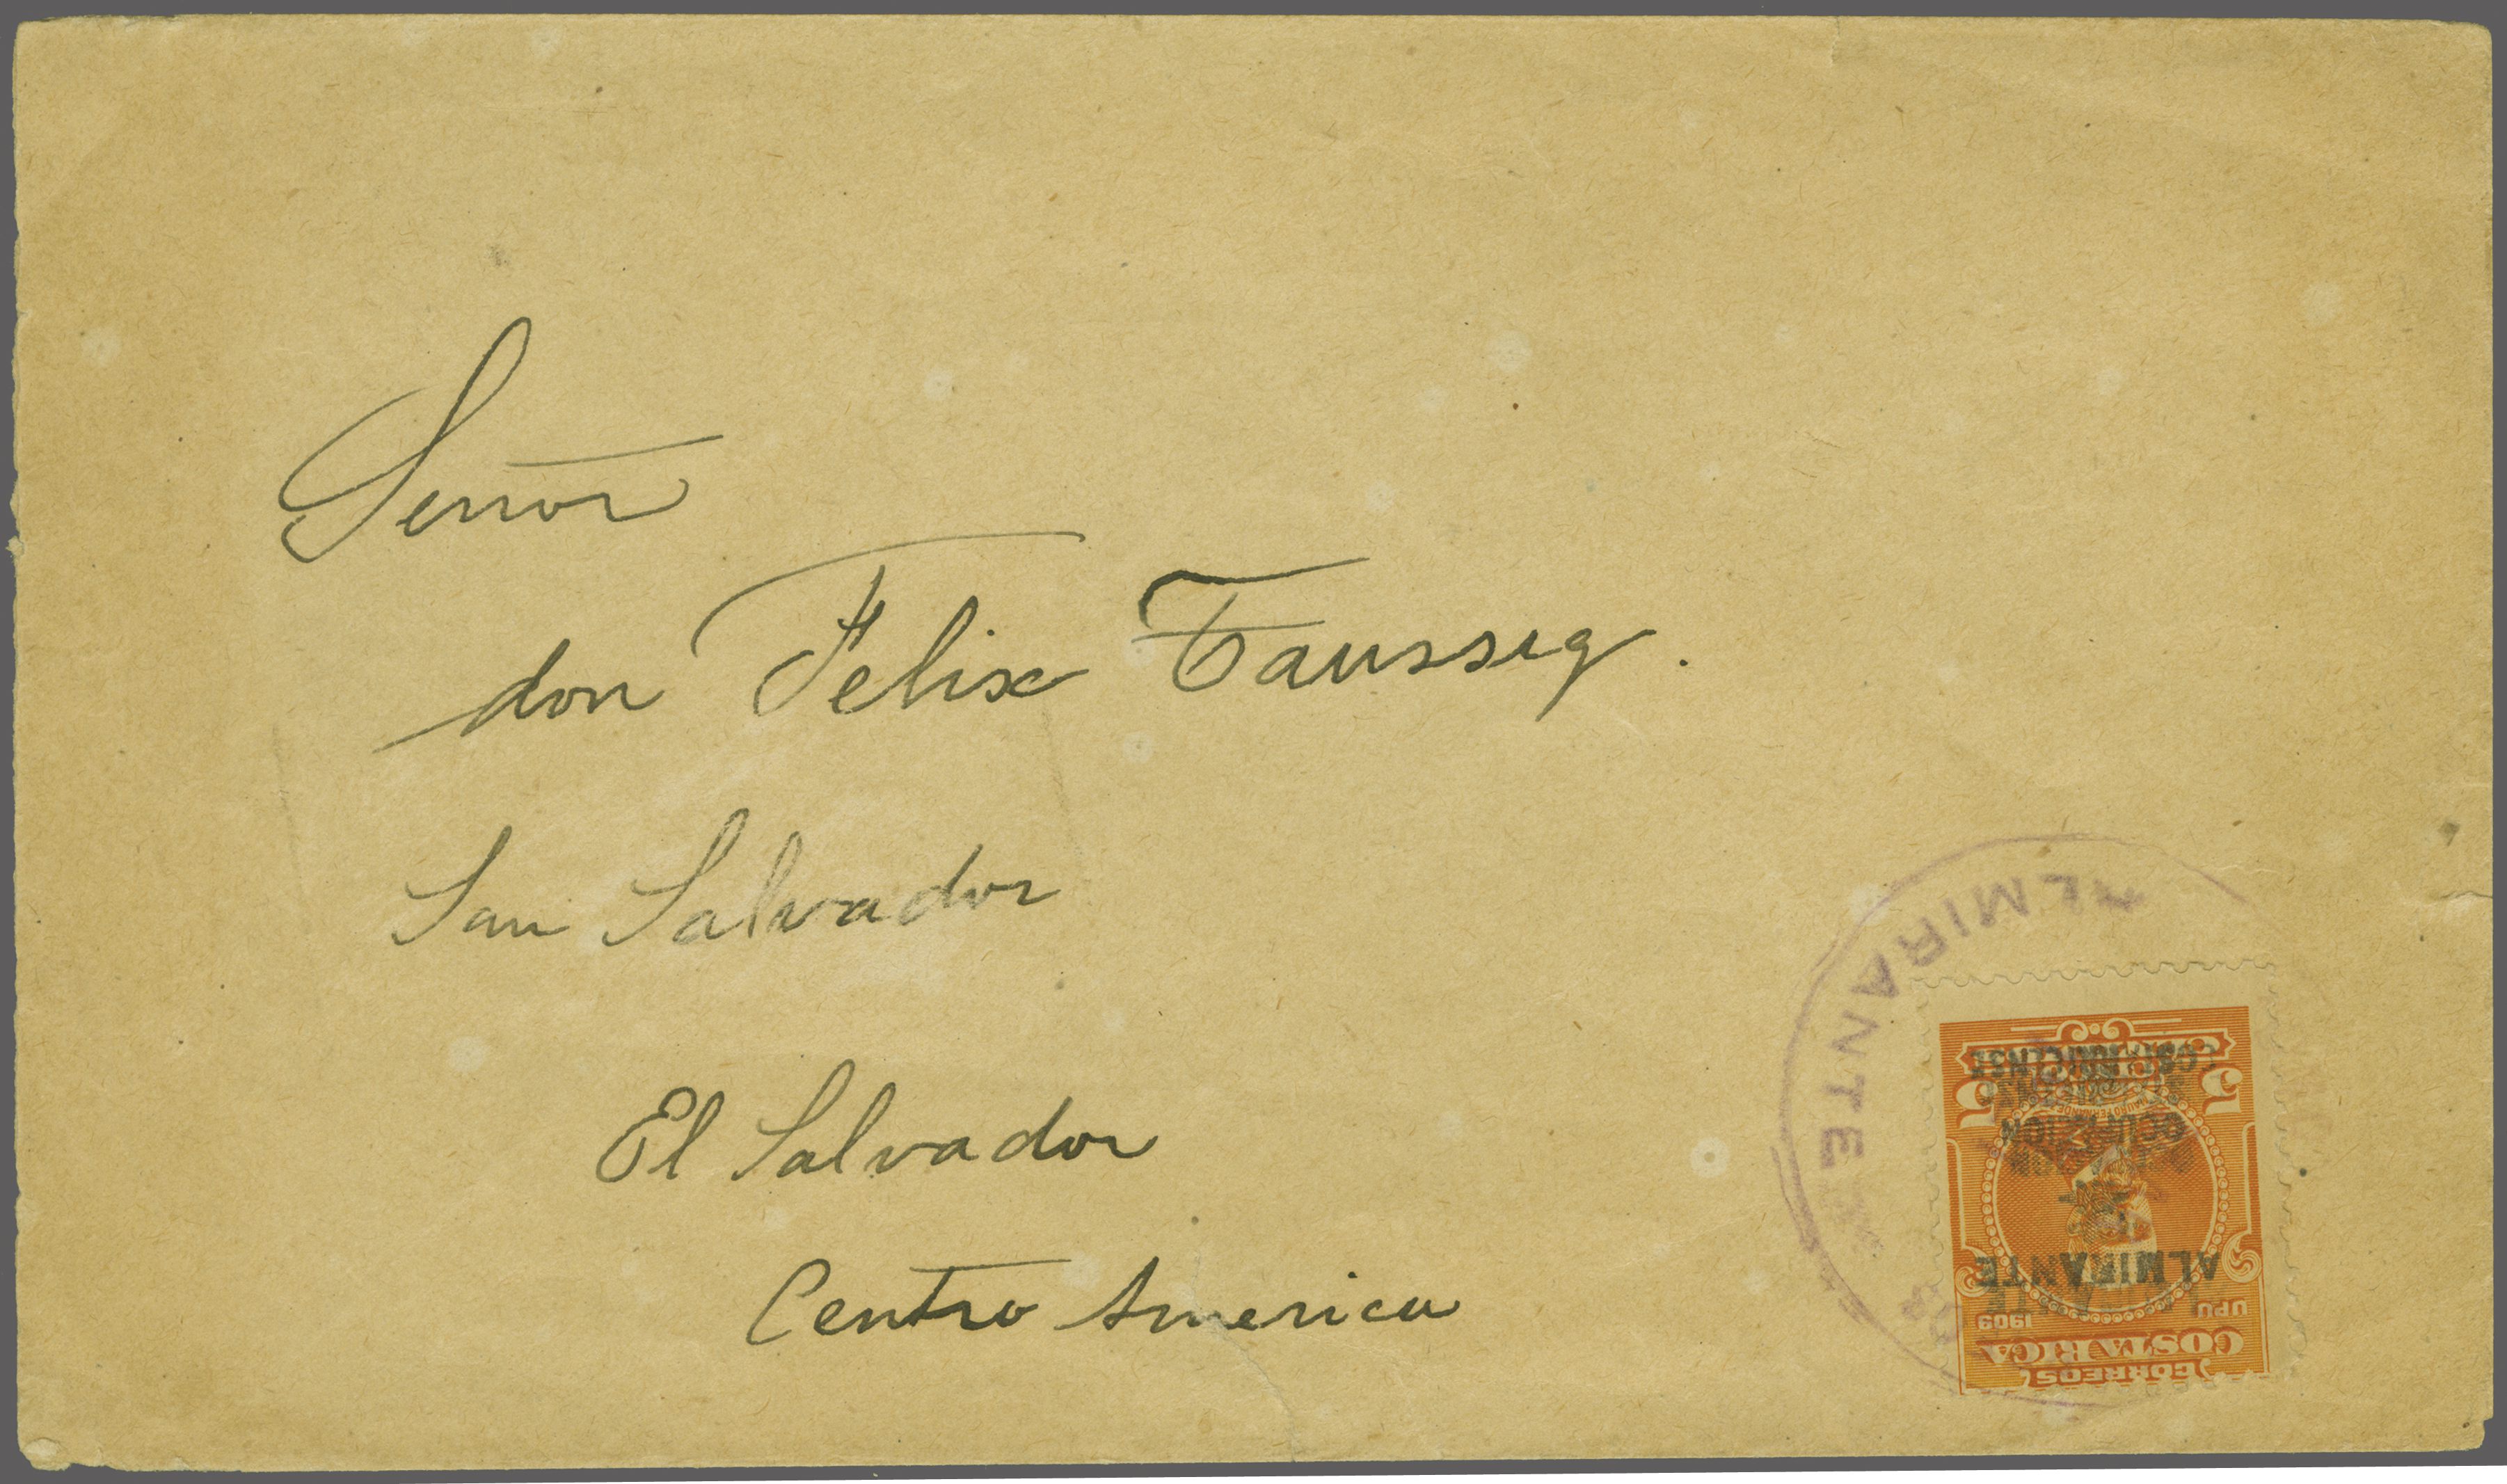 Señor
don Felix Taussig.
San Salvador
El Salvador
Centro America
ALMIRANTE
CORREOS
COSTA RICA
UPU 1909
ALMIRANTE
OCUPACION
COSTARRICENSE
5 5